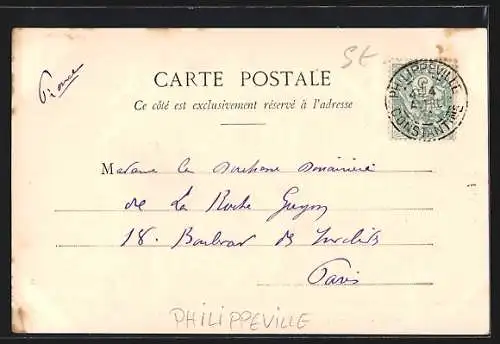 France
St
CARTE POSTALE
Ce côté est exclusivement réservé à l'adresse
PHILIPPEVILLE
CONSTANTINE
Madame La Duchesse Douairière
de La Roche Guyon
18. Boulevard des Invalides
Paris
PHILIPPEVILLE